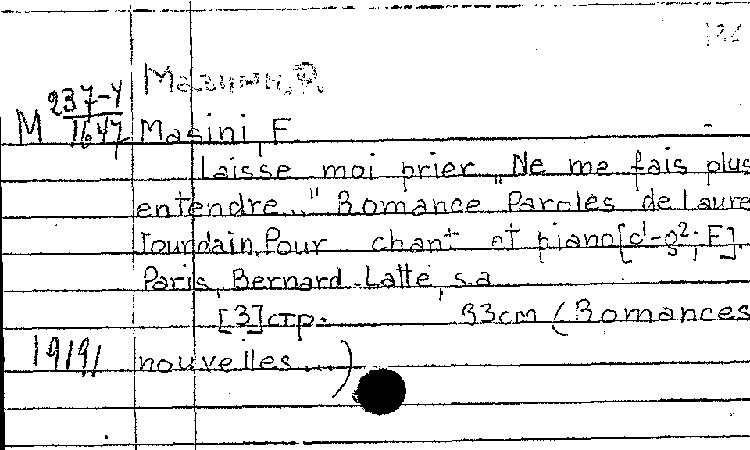 Мазини, Ф.
М 237-У
1647
Masini, F.
Laisse moi prier „Ne me fais plus
entendre..." Romance Paroles de Laure
Jourdain. Pour chant et piano [c¹-g²; F].
Paris, Bernard-Latte, s.a
[3] стр. 33cm (Romances
19191 nouvelles ...)